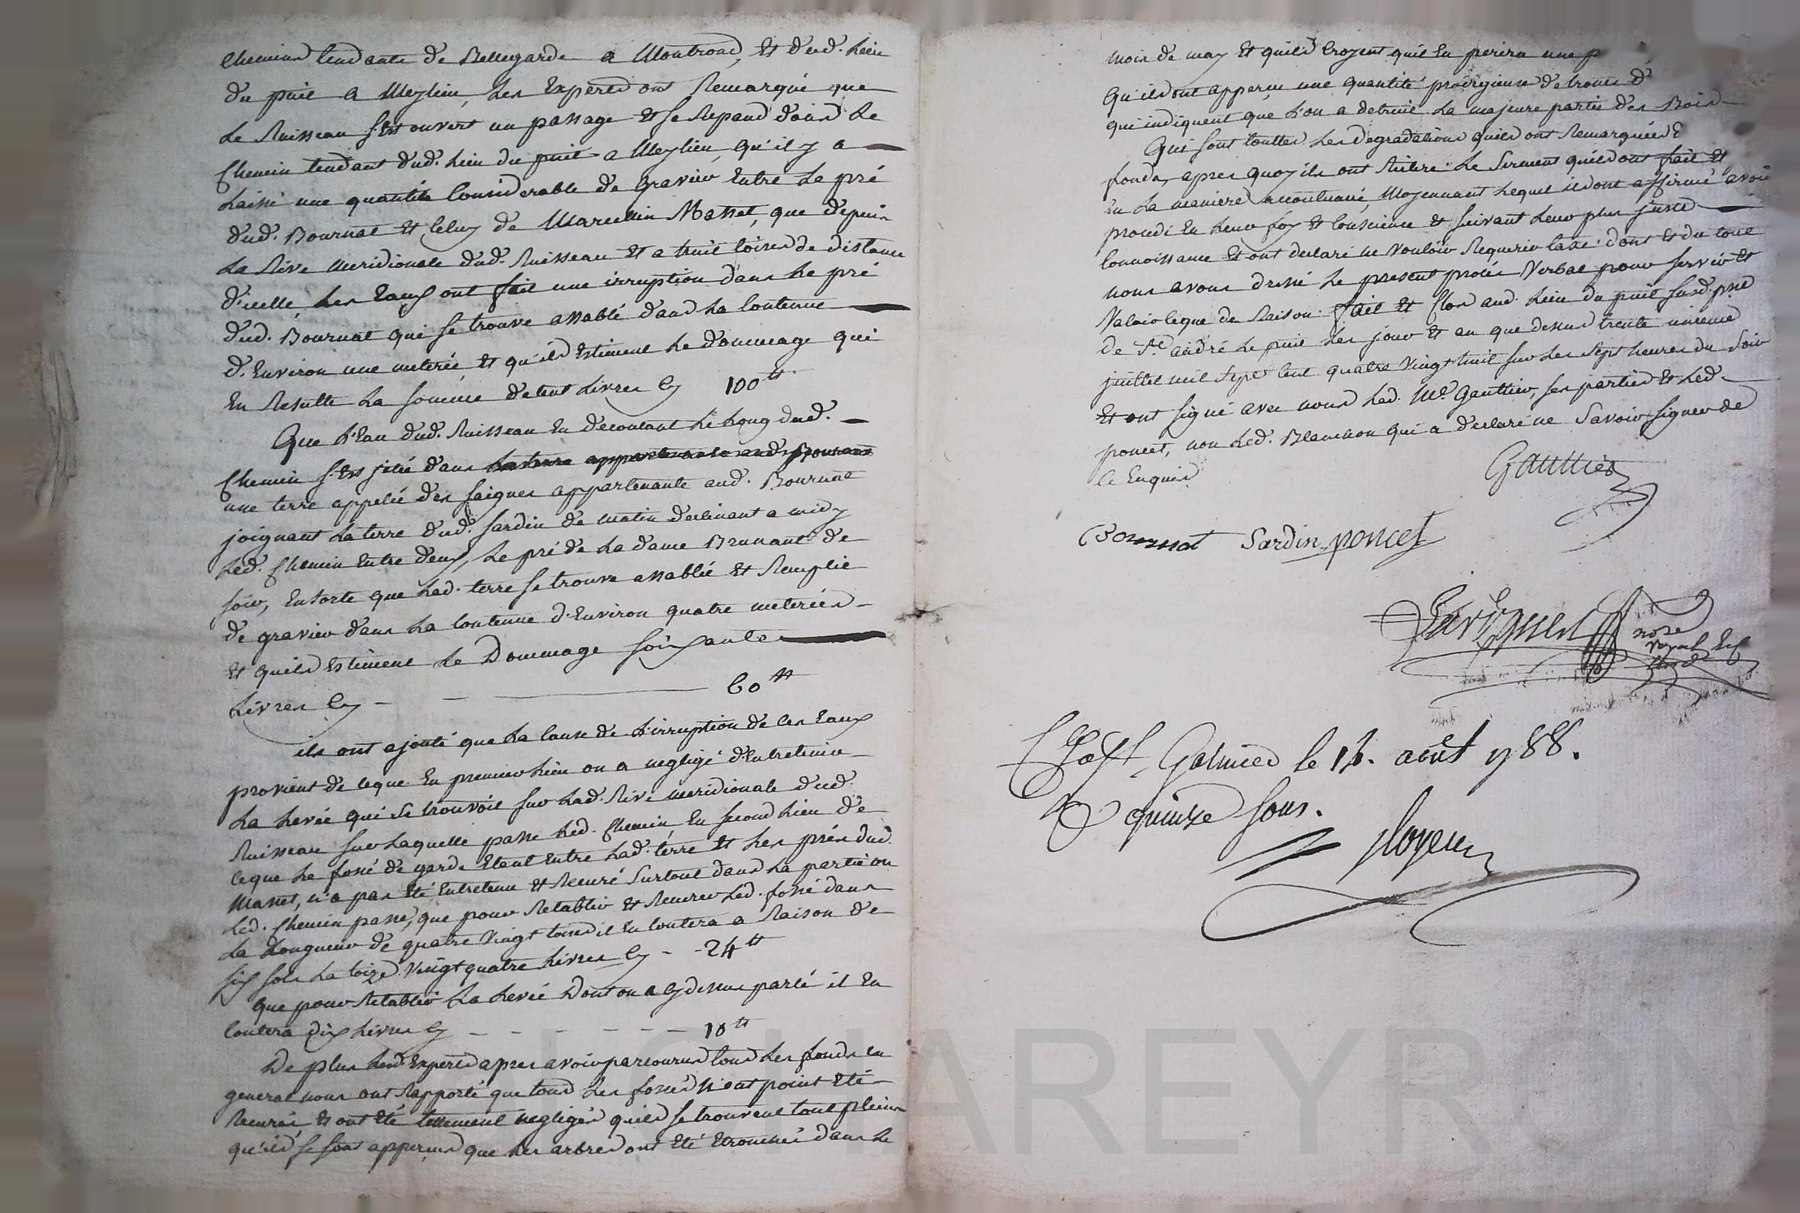 chemins tendants de Bellegarde a Montrond, et dud. lieu
du puit a Meylieu, Les Experts ont Remarqué que
Le Ruisseau s'est ouvert un passage et se Repand dans Le
Chemin tendant dud. lieu du puit a Meylieu, qu'il y a
Laissé une quantité Considerable de gravier Entre Le pré
dud. Bournat et Celuy de Marcellin Masset, que depuis
La Rive meridionale dud. Ruisseau et a huit toises de distance
d'icelle, Les Eaux ont fait une irruption dans Le pré
dud. Bournat qui se trouve assablé dans La Contenue
d'Environ une meterée, et qu'ils Estiment Le dommage qui
En Resulte La somme de Cent Livres Cy 100tt
Que L'Eau dud. Ruisseau En decoulant Le Long dud.
Chemin s'est jetée dans La terre appartenante aud. Bournat
une terre appelée des saignes appartenante aud. Bournat
joignant La terre dud. Sardin de matin declinant a midy
Led. Chemin Entre deux, Le pré de La dame Brunant de
soir, Ensorte que Lad. terre se trouve assablée et Remplie
de gravier dans La Contenue d'Environ quatre meterées
et qu'ils Estiment Le Dommage soixante
Livres Cy 60tt
ils ont ajouté que La Cause de L'irruption de Ces Eaux
provient de ceque En premier Lieu on a negligé d'Entretenir
La Levée qui se trouvoit sur Lad. Rive meridionale dud.
Ruisseau sur Laquelle passe Led. Chemin En second Lieu de
ceque Le fossé de garde Etant Entre Lad. terre et Les prés dud.
Masset, n'a pas Eté Entretenu et Recuré surtout dans La partie ou
Led. Chemin passe, que pour Retablir et Recurer Led. fossé dans
La Longueur de quatre Vingt toises il En Coutera a Raison de
six sols La toize Vingt quatre Livres Cy 24tt
Que pour Retablir La Levée Dont on a Cy dessus parlé il En
Coutera dix Livres Cy 10tt
De plus Lesd. Experts apres avoir parcouru tous Les fonds en
general nous ont Rapporté que tous Les fossés n'ont point Eté
Recurés et ont Eté tellement negligés qu'ils se trouvent tout pleins
qu'ils se sont apperçus que Les arbres ont Eté Etronchés dans Le
mois de may et qu'ils Croyent qu'il En perira une p
Qu'ils ont apperçu une quantité prodigieuse de troncs d
qui indiquent que L'on a detruit La majeure partie des Bois
Qui sont touttes Les degradations qu'ils ont Remarquées
fonds, apres quoy ils ont Reiteré Le serment qu'ils ont fait et
En La maniere accoutumée Moyennant Lequel ils ont affirmé avoir
procedé En Leur foy et Conscience et suivant Leur plus juste
Connoissance et ont declaré ne Vouloir Requerir taxe: dont et du tout
nous avons dressé Le present procès Verbal pour servir et
Valoir ceque de Raison. fait et Clos aud. Lieu du puit susd. psse
de St. andré Le puit Les jour et an que dessus trente unieme
juillet mil sept Cent quatre Vingt huit sur Les sept heures du soir
Et ont signé avec nous Led. Me Gauttier, ses parties et Led.
poncet, non Led. Blanchon qui a declaré ne Savoir Signer de
Ce Enquis
Gauttier
Bournat Sardin poncet
nore
royal
St. Galmier le 14. août 1788.
quinze sous.